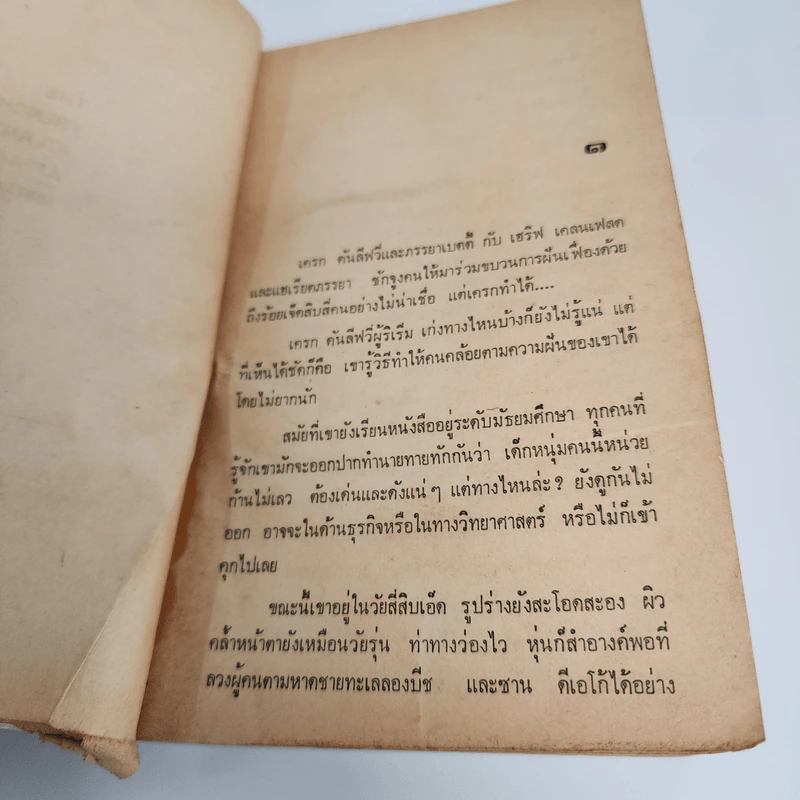 ๑
เครก คันลีฟวี่และภรรยาเบตตี้ กับ เฮริฟ เคลนเฟลด
และแฮเรียตภรรยา ชักจูงคนให้มาร่วมขบวนการผืนเฟื่องด้วย
ถึงร้อยเจ็ดสิบสี่คนอย่างไม่น่าเชื่อ แต่เครกทำได้....
เครก คันลีฟวี่ผู้ริเริ่ม เก่งทางไหนบ้างก็ยังไม่รู้แน่ แต่
ที่เห็นได้ชัดก็คือ เขารู้วิธีทำให้คนคล้อยตามความฝันของเขาได้
โดยไม่ยากนัก
สมัยที่เขายังเรียนหนังสืออยู่ระดับมัธยมศึกษา ทุกคนที่
รู้จักเขามักจะออกปากทำนายทายทักกันว่า เด็กหนุ่มคนนี้หน่วย
ก้านไม่เลว ต้องเด่นและดังแน่ๆ แต่ทางไหนล่ะ? ยังดูกันไม่
ออก อาจจะในด้านธุรกิจหรือในทางวิทยาศาสตร์ หรือไม่ก็เข้า
คุกไปเลย
ขณะนี้เขาอยู่ในวัยสี่สิบเอ็ด รูปร่างยังสะโอดสะอง ผิว
คล้ำหน้าตายังเหมือนวัยรุ่น ท่าทางว่องไว หุ่นก็สำอางค์พอที่
ลวงผู้คนตามหาดชายทะเลลองบีช และซาน ดีเอโก้ได้อย่าง